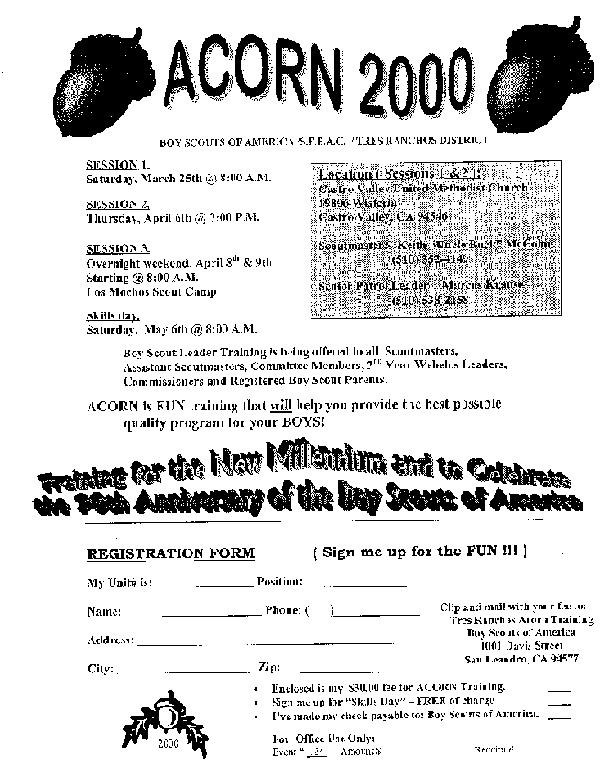 ACORN 2000
BOY SCOUTS OF AMERICA TRES RANCHOS DISTRICT
SESSION 1.
Saturday, March 25th @ 8:00 A.M.
SESSION 2.
Thursday, April 6th @ 7:00 P.M.
SESSION 3.
Overnight weekend, April 8th & 9th
Starting @ 8:00 A.M.
Los Mochos Scout Camp
Skills day.
Saturday, May 6th @ 8:00 A.M.
Location ( Sessions 1 & 2 ):
Castro Valley United Methodist Church
19806 Wisteria
Castro Valley, CA 94546
Scoutmaster
(510)
Senior Patrol Leader Marcus Krause
(510)
Boy Scout Leader Training is being offered to all Scoutmasters,
Assistant Scoutmasters, Committee Members, 2nd Year Webelos Leaders,
Commissioners and Registered Boy Scout Parents.
ACORN is FUN training that will help you provide the best possible
quality program for your BOYS!
Training for the New Millennium and to Celebrate
the Anniversary of the Boy Scouts of America
REGISTRATION FORM ( Sign me up for the FUN !!! )
My Unit# is: Position:
Name: Phone: ( )
Address:
City: Zip:
Clip and mail with your fee to:
Tres Ranchos Acorn Training
Boy Scouts of America
1001 Davis Street
San Leandro, CA 94577
• Enclosed is my $30.00 fee for ACORN Training.
• Sign me up for "Skills Day" – FREE of charge
• I've made my check payable to: Boy Scouts of America.
2000
For Office Use Only:
Event # Amount$ Receipt #